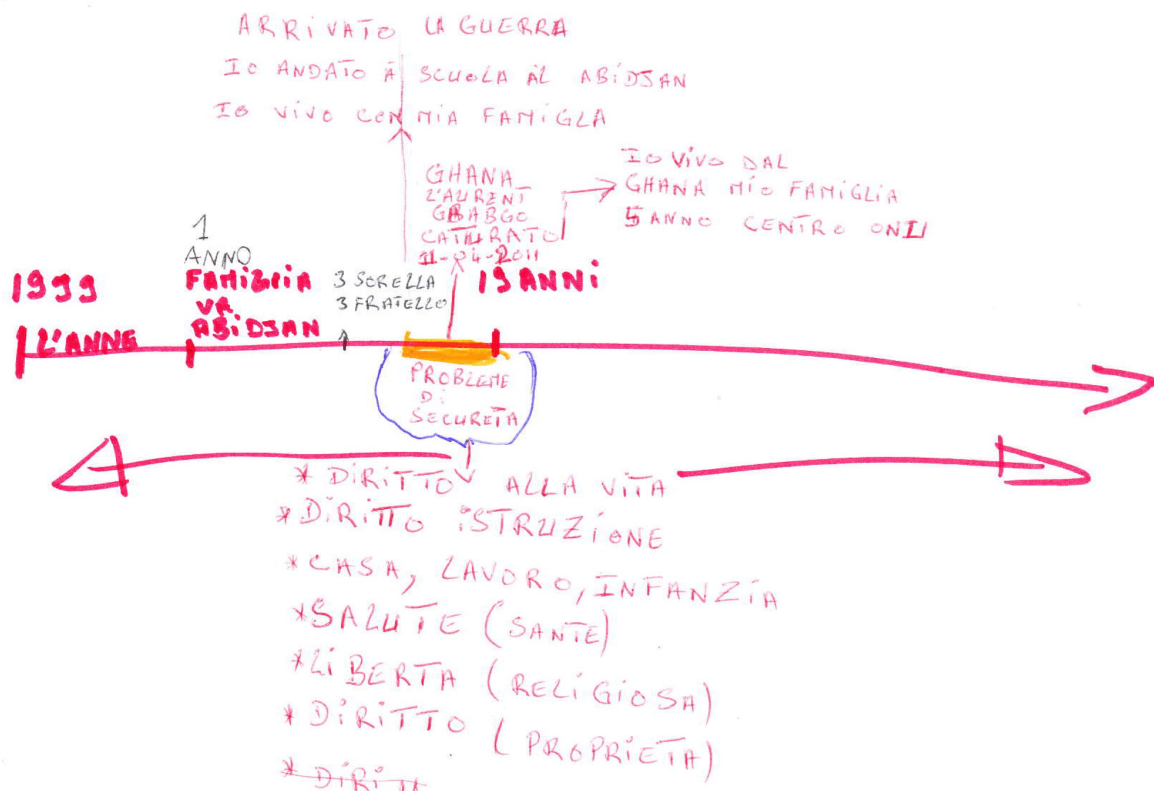 ARRIVATO LA GUERRA
IO ANDATO A SCUOLA AL ABIDJAN
IO VIVO CON MIA FAMIGLA
GHANA
L'AURENT
GBABGO
CATTURATO
11-04-2011
IO VIVO DAL
GHANA MIO FAMIGLIA
5 ANNO CENTRO ONU
1
ANNO
1999
L'ANNE
FAMIGLIA
VA
ABIDJAN
3 SORELLA
3 FRATELLO
19 ANNI
PROBLEME
DI
SECURETA
* DIRITTO ALLA VITA
* DIRITTO ISTRUZIONE
* CASA, LAVORO, INFANZIA
* SALUTE (SANTE)
* LIBERTA (RELIGIOSA)
* DIRITTO (PROPRIETA)
* DIRITTI